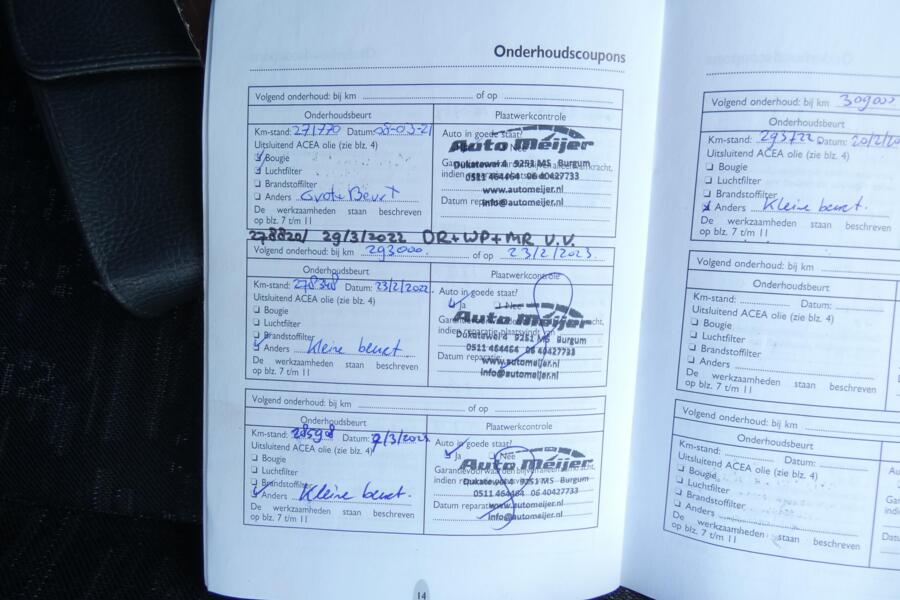 Onderhoudscoupons
Volgend onderhoud: bij km of op
Onderhoudsbeurt Plaatwerkcontrole
Km-stand: 271770 Datum: 08-03-21 Auto in goede staat?
Uitsluitend ACEA olie (zie blz. 4)
Bougie
Luchtfilter
Brandstoffilter
Anders Grote Beurt
De werkzaamheden staan beschreven
op blz. 7 t/m 11
Auto Meijer
Dukatewei 4 9251 MS Burgum
0511 464464 06 40427733
www.automeijer.nl
Datum
info@automeijer.nl
278820/ 29/3/2022 OR+WP+MR V.V.
Volgend onderhoud: bij km 293000. of op 23/2/2023.
Onderhoudsbeurt Plaatwerkcontrole
Km-stand: Datum: 23/2/2022. Auto in goede staat?
Uitsluitend ACEA olie (zie blz. 4) Ja
Bougie
Luchtfilter
Brandstoffilter
Anders Kleine beurt
De werkzaamheden staan beschreven
op blz. 7 t/m 11
Auto Meijer
Dukatewei 4 9251 MS Burgum
0511 464464 06 40427733
Datum
www.automeijer.nl
info@automeijer.nl
Volgend onderhoud: bij km of op
Onderhoudsbeurt Plaatwerkcontrole
Km-stand: 285908 Datum: Auto in goede staat?
Uitsluitend ACEA olie (zie blz. 4) Ja Nee
Bougie
Luchtfilter
Brandstoffilter
Anders Kleine beurt.
De werkzaamheden staan beschreven
op blz. 7 t/m 11
Auto Meijer
Dukatewei 4 9251 MS Burgum
0511 464464 06 40427733
Datum
www.automeijer.nl
info@automeijer.nl
14
Volgend onderhoud: bij km 309000
Onderhoudsbeurt
Km-stand: 293722 Datum:
Uitsluitend ACEA olie (zie blz. 4)
Bougie
Luchtfilter
Brandstoffilter
Anders Kleine beurt.
De werkzaamheden staan beschreven
op blz. 7 t/m 11
Volgend onderhoud: bij km
Onderhoudsbeurt
Km-stand: Datum:
Uitsluitend ACEA olie (zie blz. 4)
Bougie
Luchtfilter
Brandstoffilter
Anders
De werkzaamheden staan beschreven
op blz. 7 t/m 11
Volgend onderhoud: bij km
Onderhoudsbeurt
Km-stand: Datum:
Uitsluitend ACEA olie (zie blz. 4)
Bougie
Luchtfilter
Brandstoffilter
Anders
De werkzaamheden staan beschreven
op blz. 7 t/m 11